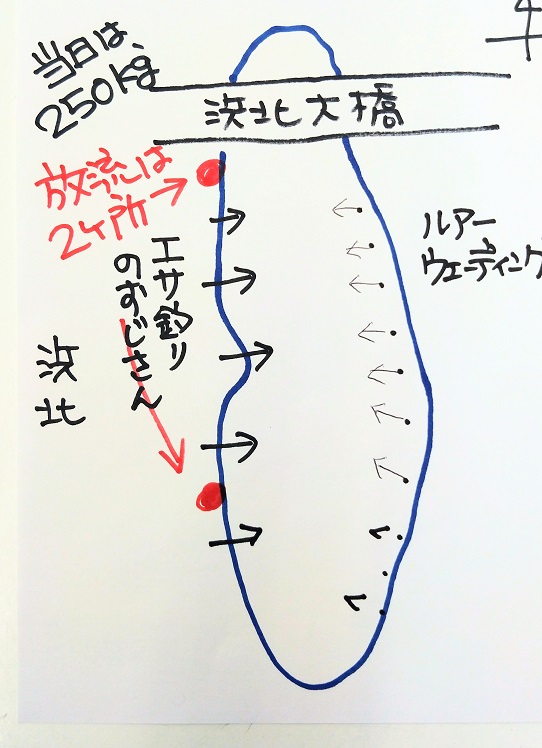 当日は、
250kg
浜北大橋
放流は
2ヶ所
エサ釣り
のおじさん
浜北
ルアー
ウェーディング